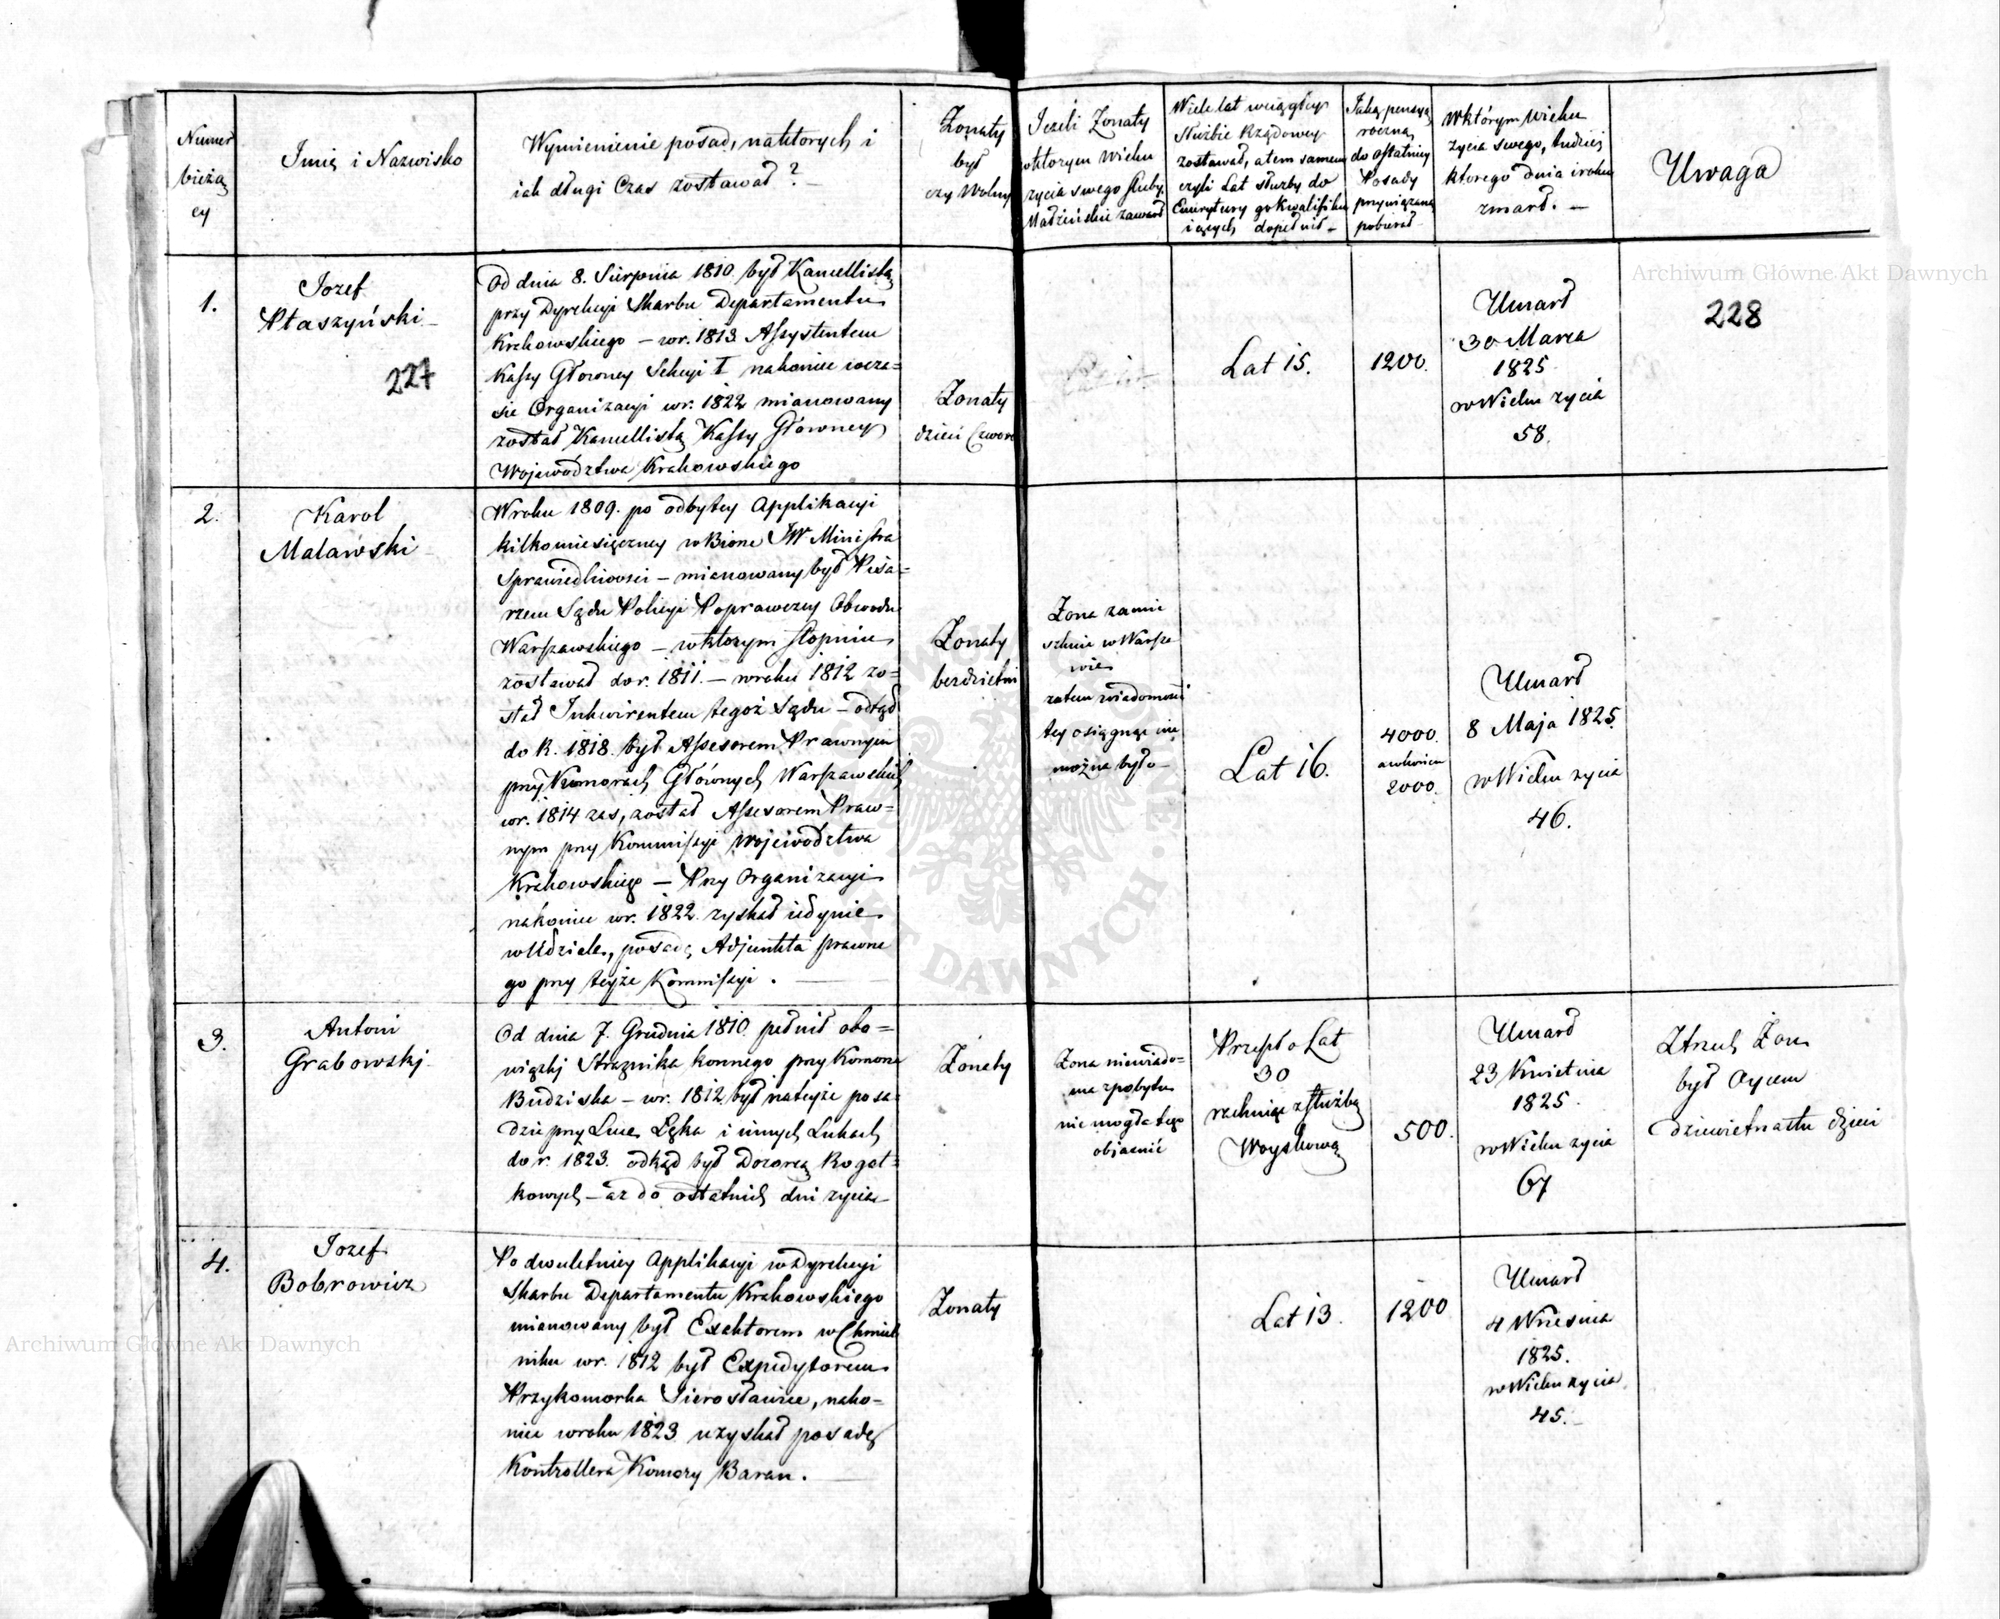 Numer
bieżą
cy
Imię i Nazwisko
Wymienienie posad, na których i
iak długi Czas zostawał? –
Żonaty
był
czy Wolny
Jeżeli Żonaty
w którym wieku
życia swego śluby
Małżeńskie zawarł
Wiele lat w ciągłey
Służbie Rządowey
zostawał, a tem samem
czyli Lat służby do
Emerytury go kwalifiku
iących dopełnił –
Jaką pensyą
roczną
do ostatniey
Posady
przywiązaną
pobierał
W którym wieku
życia swego, tudzież
którego dnia i roku
zmarł. –
Uwaga
Archiwum Główne Akt Dawnych
1.
Jozef
Ptaszyński –
227
Od dnia 8. Sierpnia 1810 był Kancellistą
przy Dyrekcyi Skarbu Departamentu
Krakowskiego – w r. 1813 Assystentem
Kassy Głowney Sekcyi I nakoniec w cza=
sie Organizacyi w r. 1822 mianowany
został Kancellistą Kassy Głowney
Województwa Krakowskiego
Żonaty
dzieci Czworo
Lat 15.
1200.
Umarł
30 Marca
1825
w Wieku życia
58.
228
2.
Karol
Malawski –
W roku 1809. po odbytey Applikacyi
kilkomiesięczney w Biórze JW Ministra
Sprawiedliwości – mianowany był Pisa=
rzem Sądu Policyi Poprawczey Obwodu
Warszawskiego – w którym stopniu
zostawał do r. 1811. – w roku 1812 zo=
stał Inkwirentem tegoż Sądu – odtąd
do R. 1818. był Assesorem Prawnym
przy Komorach Głównych Warszawskich
w r. 1814 zas, został Assesorem Praw=
nym przy Kommissyi Województwa
Krakowskiego – Przy Organizacyi
nakoniec w r. 1822. zyskał iedynie
w Udziele, posadę, Adjunkta prawne
go przy teyże Kommissyi. –
Żonaty
bezdzietni
Żona zamie
szkuie w Warsza
wie
zatem wiadomości
tey osiągnąć nie
można było –
Lat 16.
4000.
a w końcu
2000.
Umarł
8 Maja 1825
w Wieku życia
46.
3.
Antoni
Grabowskj
Od dnia 7. Grudnia 1810. pełnił obo=
wiązkj Strażnika konnego przy Komorze
Budziska – w r. 1812 był na teyże posa=
dzie przy Luce Łęka i innych Lukach
do r. 1823. odkąd był Dozorcą Rogat=
kowych – aż do ostatnich dni życia –
Żonaty
Żona niewiado=
ma z pobytu
nie mogła tego
objaśnić
Przeszło Lat
30
rachuiąc z służbą
Woyskową
500.
Umarł
23 Kwietnia
1825
w Wieku życia
67
Z trzech Żon
był Oycem
dziewietnastu dzieci
4.
Jozef
Bobrowicz
Po dwuletniey Applikacyi w Dyrekcyi
Skarbu Departamentu Krakowskiego
mianowany był Exaktorem w Chmiel
niku w r. 1812 był Expedytorem
Przykomorka Sierosławice, nako=
niec w roku 1823 uzyskał posadę
Kontrollera Komory Baran. –
Żonaty
Lat 13.
1200
Umarł
4 Wrześnıa
1825.
w Wieku życia
45.
Archiwum Główne Akt Dawnych
AKT DAWNYCH